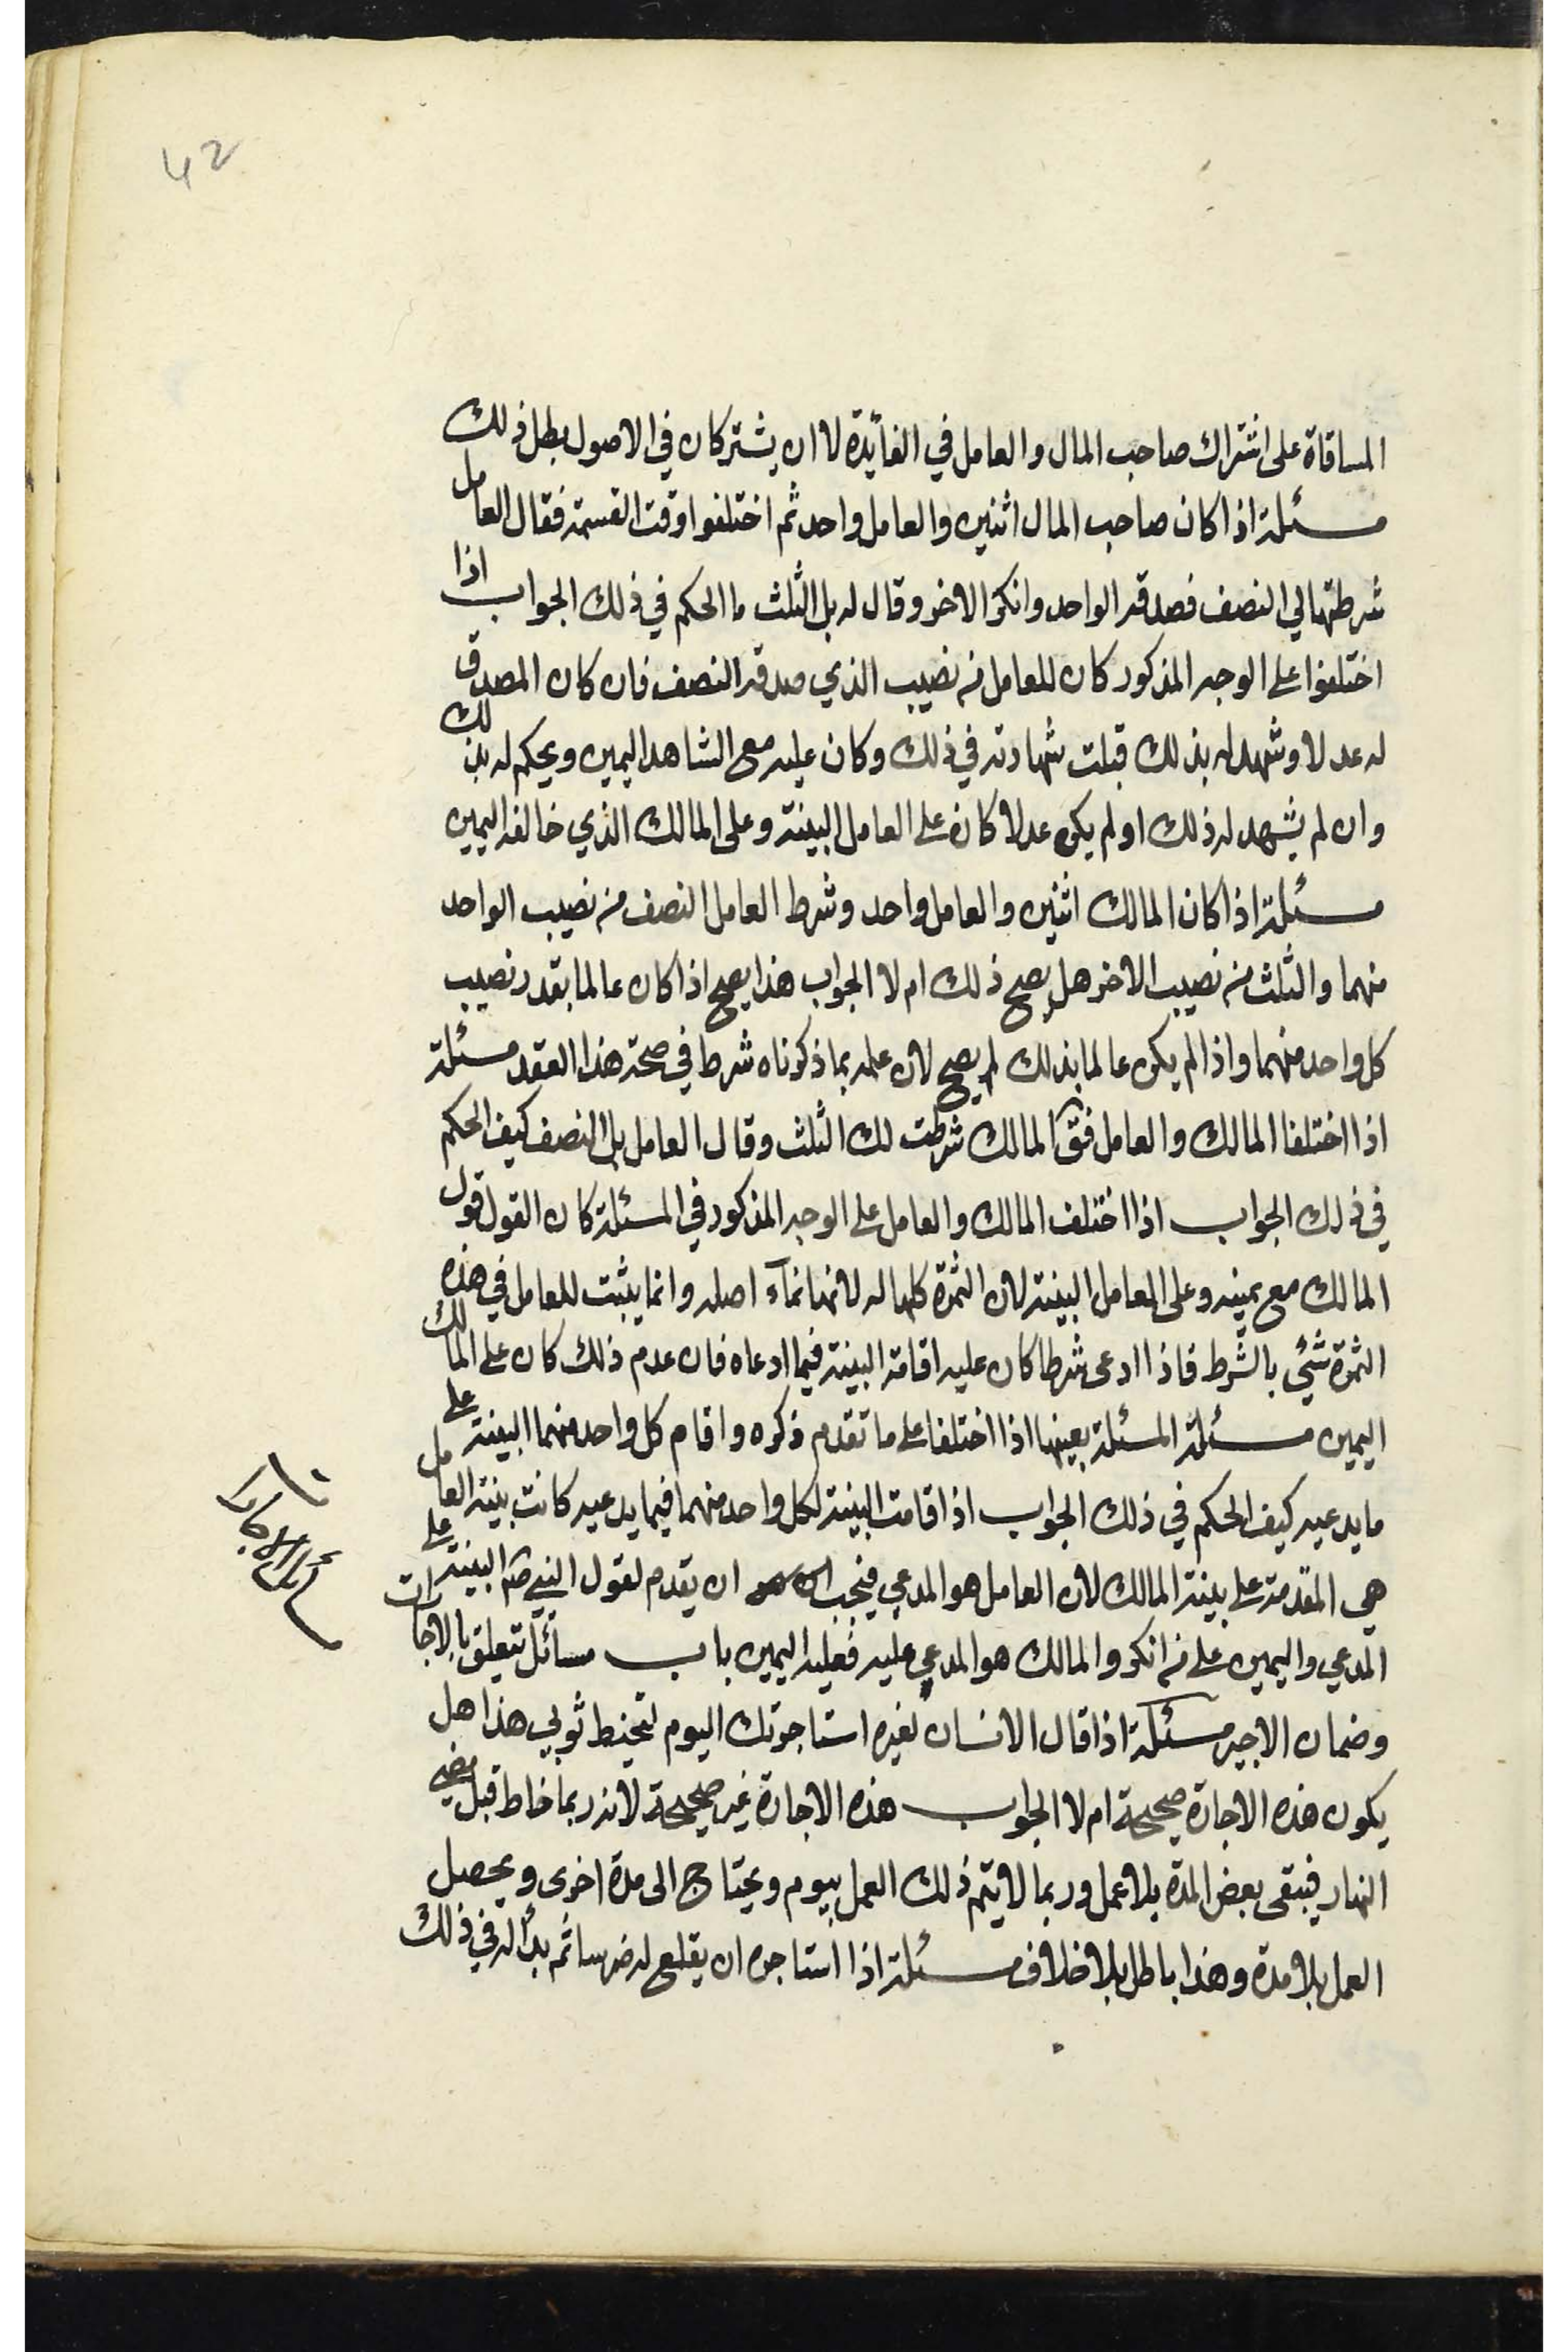 42
المساقاة على اشتراك صاحب المال والعامل في الفائدة لا ان يشتركان في الاصول بطل ذلك
مسئلة اذا كان صاحب المال اثنين والعامل واحد ثم اختلفوا وقت القسمة فقال العامل
شرطتما لي النصف فصدقه الواحد وانكر الاخر وقال له بل الثلث ما الحكم في ذلك الجواب اذا
اختلفوا على الوجه المذكور كان للعامل من نصيب الذي صدقه النصف فان كان المصدق
له عدلا وشهد له بذلك قبلت شهادته في ذلك وكان عليه مع الشاهد اليمين ويحكم له بذلك
وان لم يشهد له ذلك او لم يكن عدلا كان على العامل البينة وعلى المالك الذي خالفه اليمين
مسئلة اذا كان المالك اثنين والعامل واحد وشرط العامل النصف من نصيب الواحد
منهما والثلث من نصيب الاخر هل يصح ذلك ام لا الجواب هذا يصح اذا كان عالما بقدر نصيب
كل واحد منهما واذا لم يكن عالما بذلك لم يصح لان علمه بما ذكرناه شرط في صحة هذا العقد مسئلة
اذا اختلفا المالك والعامل فق المالك شرطت لك الثلث وقال العامل بل النصف كيف الحكم
في ذلك الجواب اذا اختلف المالك والعامل على الوجه المذكور في المسئلة كان القول قول
المالك مع يمينه وعلى العامل البينة لان الثمرة كلها له لانها نماء اصله وانما يثبت للعامل في هذه
الثمرة شئ بالشرط فاذا ادعى شرطا كان عليه اقامة البينة فيما ادعاه فان عدم ذلك كان على المالك
اليمين مسئلة المسئلة بعينها اذا اختلفا على ما تقدم ذكره واقام كل واحد منهما البينة على
ما يدعيه كيف الحكم في ذلك الجواب اذا اقامت البينة لكل واحد منهما فيما يدعيه كانت بينة العامل
هي المقدمة على بينة المالك لان العامل هو المدعي فيجب ان يقدم لقول النبي ص البينة على
المدعي واليمين على من انكر والمالك هو المدعي عليه فعليه اليمين باب مسائل تتعلق بالاجارات
وضمان الاجير مسئلة اذا قال الانسان لغيره استاجرتك اليوم لتخيط ثوبي هذا هل
يكون هذه الاجارة صحيحة ام لا الجواب هذه الاجارة غير صحيحة لانه ربما خاط قبل مضي
النهار فيبقى بعض المدة بلا عمل وربما لا يتم ذلك العمل بيوم ويحتاج الى مدة اخرى ويحصل
العمل بلا مدة وهذا باطل بلا خلاف مسئلة اذا استاجره ان يقلع له ضرسا ثم بدأ له في ذلك